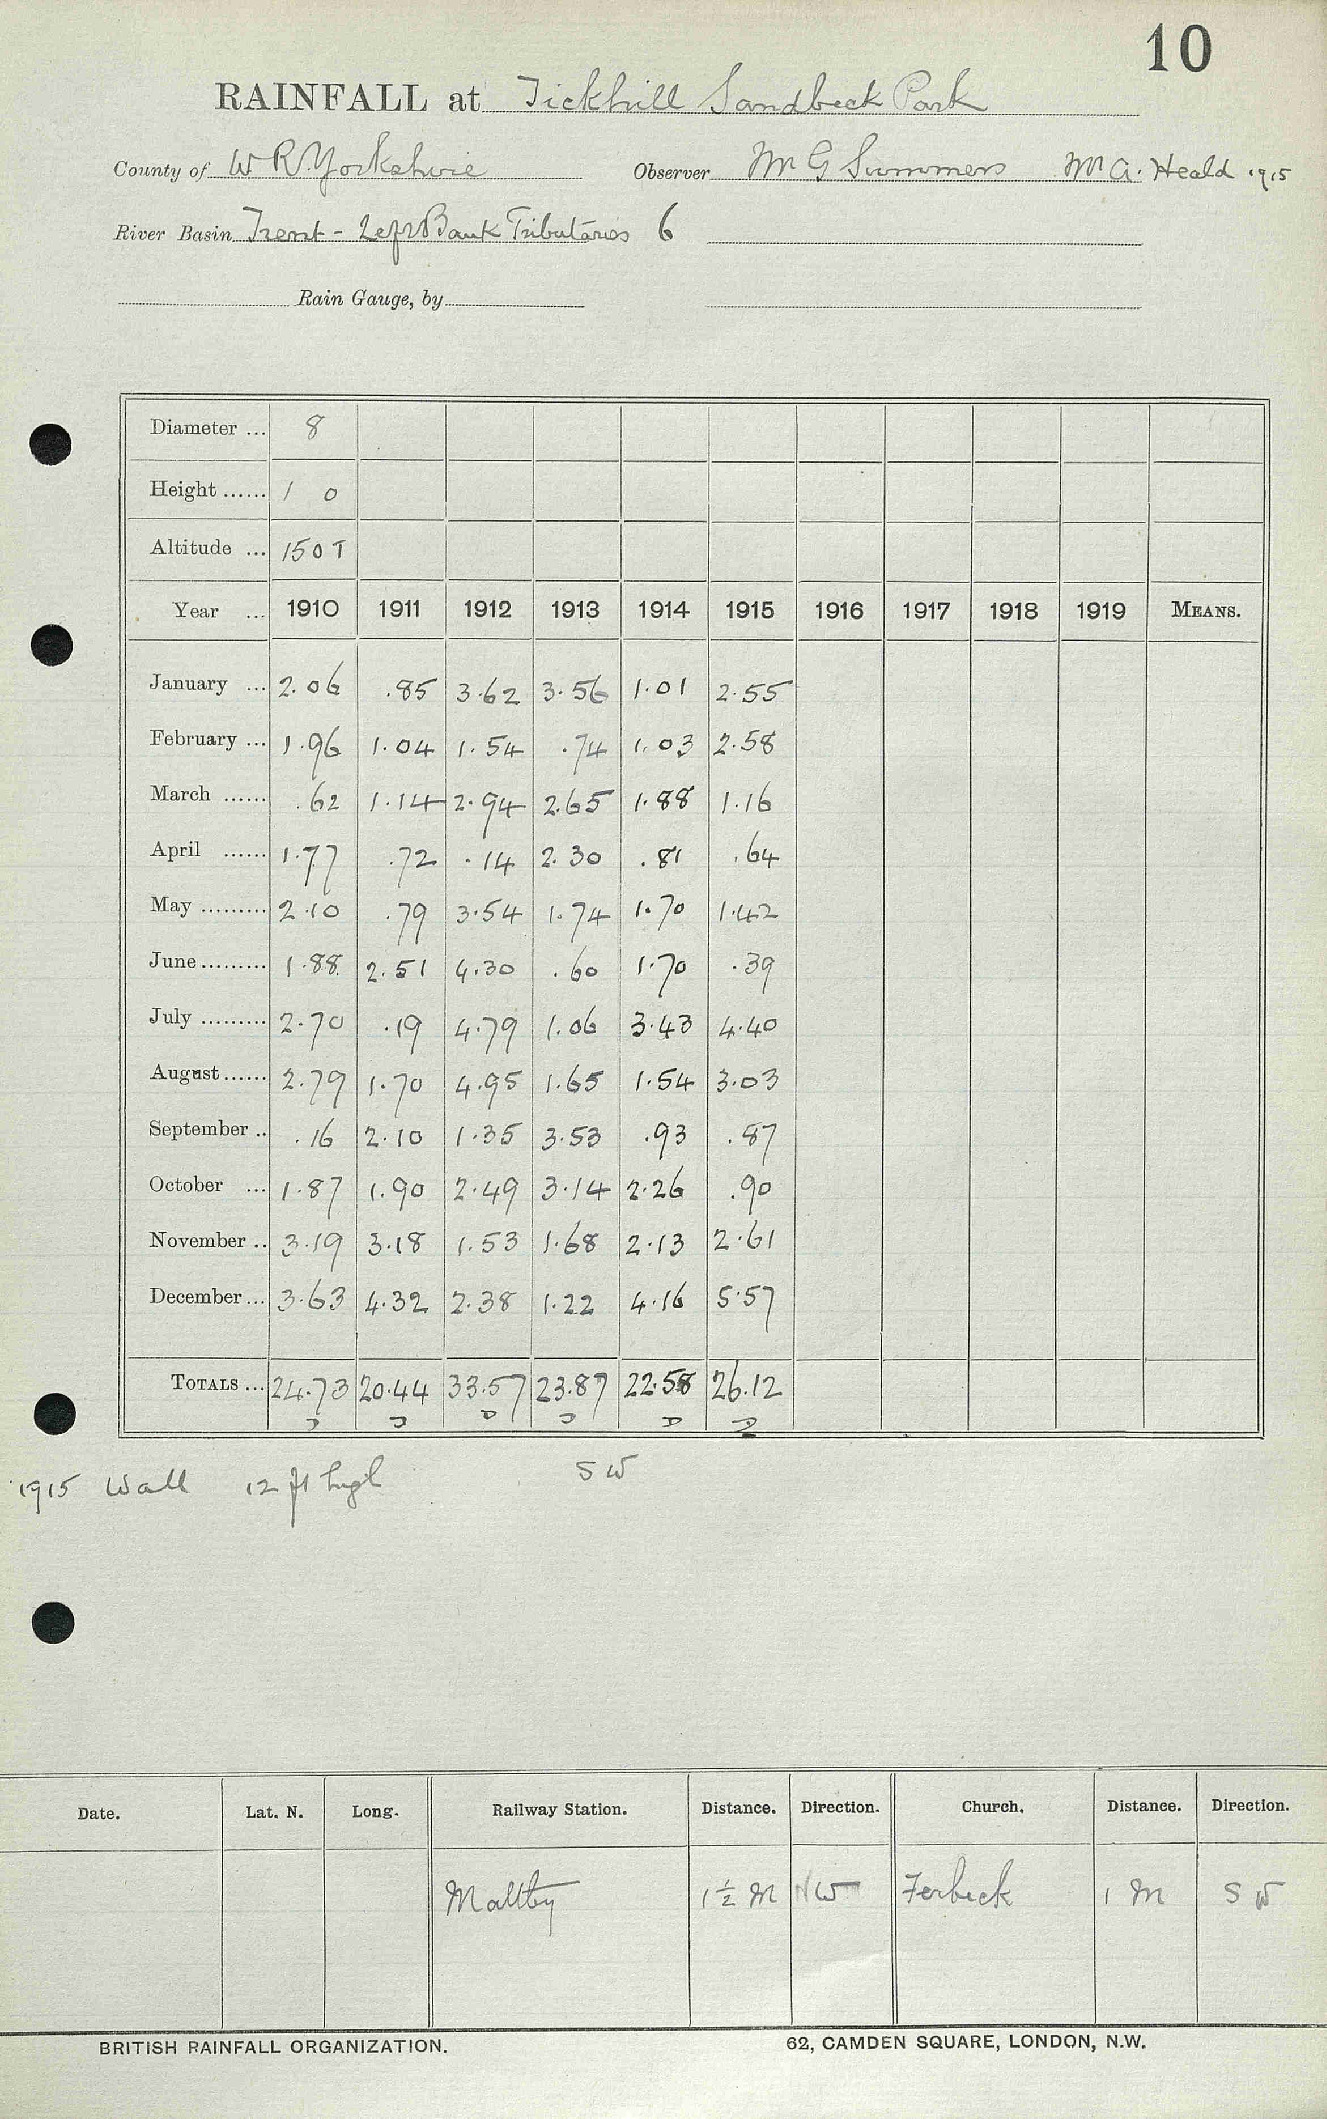 10
RAINFALL at Tickhill Sandbeck Park
County of W R Yorkshire Observer Mr G Summers Mr A. Heald 1915
River Basin Trent - Left Bank Tributaries 6
Rain Gauge, by
Diameter ... 8
Height ...... 1 0
Altitude ... 150 T
Year ... 1910 1911 1912 1913 1914 1915 1916 1917 1918 1919 MEANS.
January ... 2.06 .85 3.62 3.56 1.01 2.55
February ... 1.96 1.04 1.54 .74 1.03 2.58
March ...... .62 1.14 2.94 2.65 1.88 1.16
April ...... 1.77 .72 .14 2.30 .81 .64
May ......... 2.10 .79 3.54 1.74 1.70 1.42
June ......... 1.88 2.51 4.30 .60 1.70 .39
July ......... 2.70 .19 4.79 1.06 3.43 4.40
August ...... 2.79 1.70 4.95 1.65 1.54 3.03
September .. .16 2.10 1.35 3.53 .93 .87
October ... 1.87 1.90 2.49 3.14 2.26 .90
November .. 3.19 3.18 1.53 1.68 2.13 2.61
December ... 3.63 4.32 2.38 1.22 4.16 5.57
TOTALS ... 24.73 20.44 33.57 23.87 22.58 26.12
1915 Wall 12 ft high SW
Date. Lat. N. Long. Railway Station. Distance. Direction. Church. Distance. Direction.
Maltby 1½ M NW Ferbeck 1 M SW
BRITISH RAINFALL ORGANIZATION. 62, CAMDEN SQUARE, LONDON, N.W.